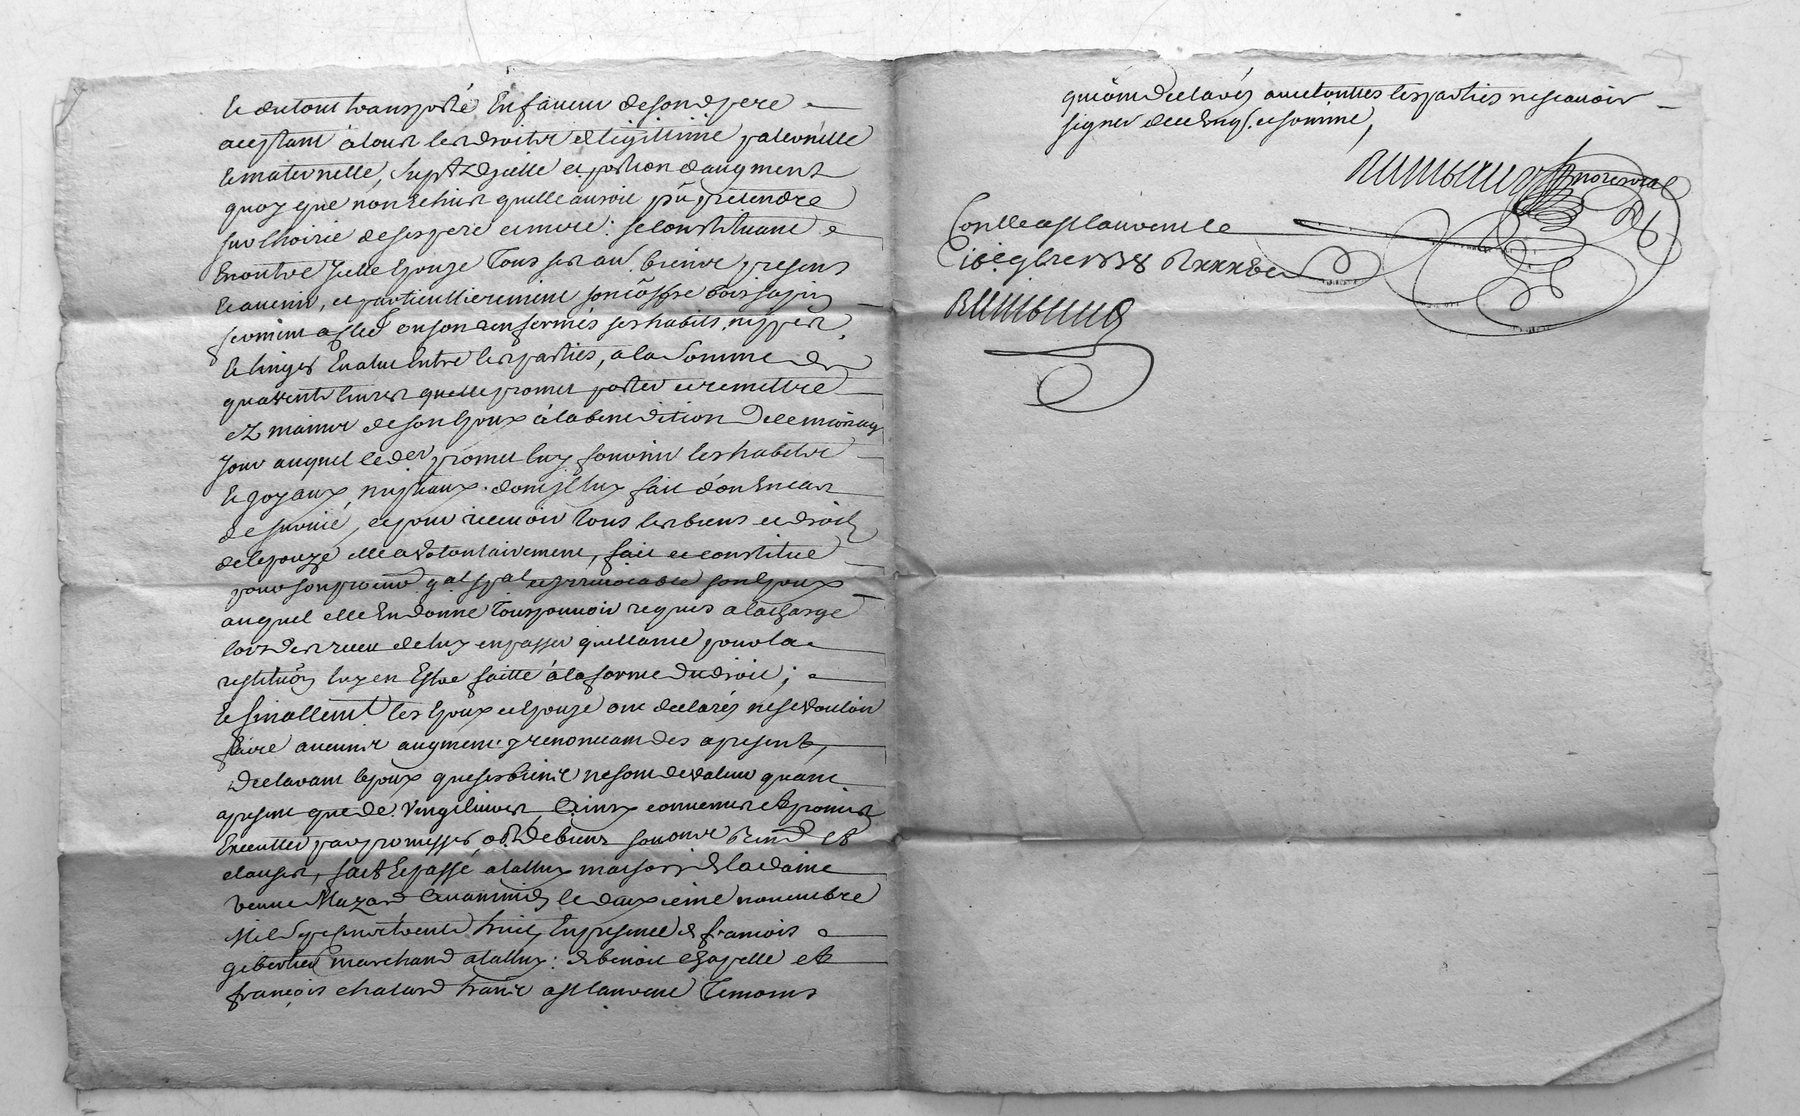 et dutout transporté En faveur desond. pere
acceptant a tous les droits et legitime paternelle
et maternelle, suplt. dicelle et portion daugment
quoy que non Echus quelle auroit pû pretendre
sur lhoirie deses pere et mere: se constituant
En outre Jcelle Epouze Tous ses au. biens presens
et avenir, et particullierement son coffre bois sapin
fermant a clef ou son enfermés ses habits, nippes,
et linges Evalué Entre les parties, a la somme de
quarente livres quelle promet porter et remettre
ez mains de son Epoux à la benediction de leur mariage
Jour auquel led. der promet luy fournir les habits
et joyaux nuptiaux dont Jl luy fait don En cas
de survie, et pour recevoir tous les biens et droits
de lepouze elle a volontairement, fait et constitué
pour son procur. gal. spal. et irrevocable son Epoux
auquel elle En donne Tous pouvoir requis a la charge
lors des receu de luy en passer quittance pour la
restitution luy en Estre faitte à la forme du droit;
et finallemt. les Epoux et Epouze ont declarés ne se vouloir
faire aucuns augment y renoncant des apresent,
declarant lepoux que ses biens ne sont de valeur quant
apresent que de vingt livres, Ainsy convenus et promis
Executter par promesses, ob. de biens soum. renon. et
clauses, fait et passé a maison de la daime
veuve Mazard avant midy le deuxieme novembre
Mil sept cent trente huit, En presence de francois
marchand : de benoit Chapelle et
françois chatard Temoins
qui ont declarés avec touttes les parties ne scavoir
signer de ce Enq. et sommé,